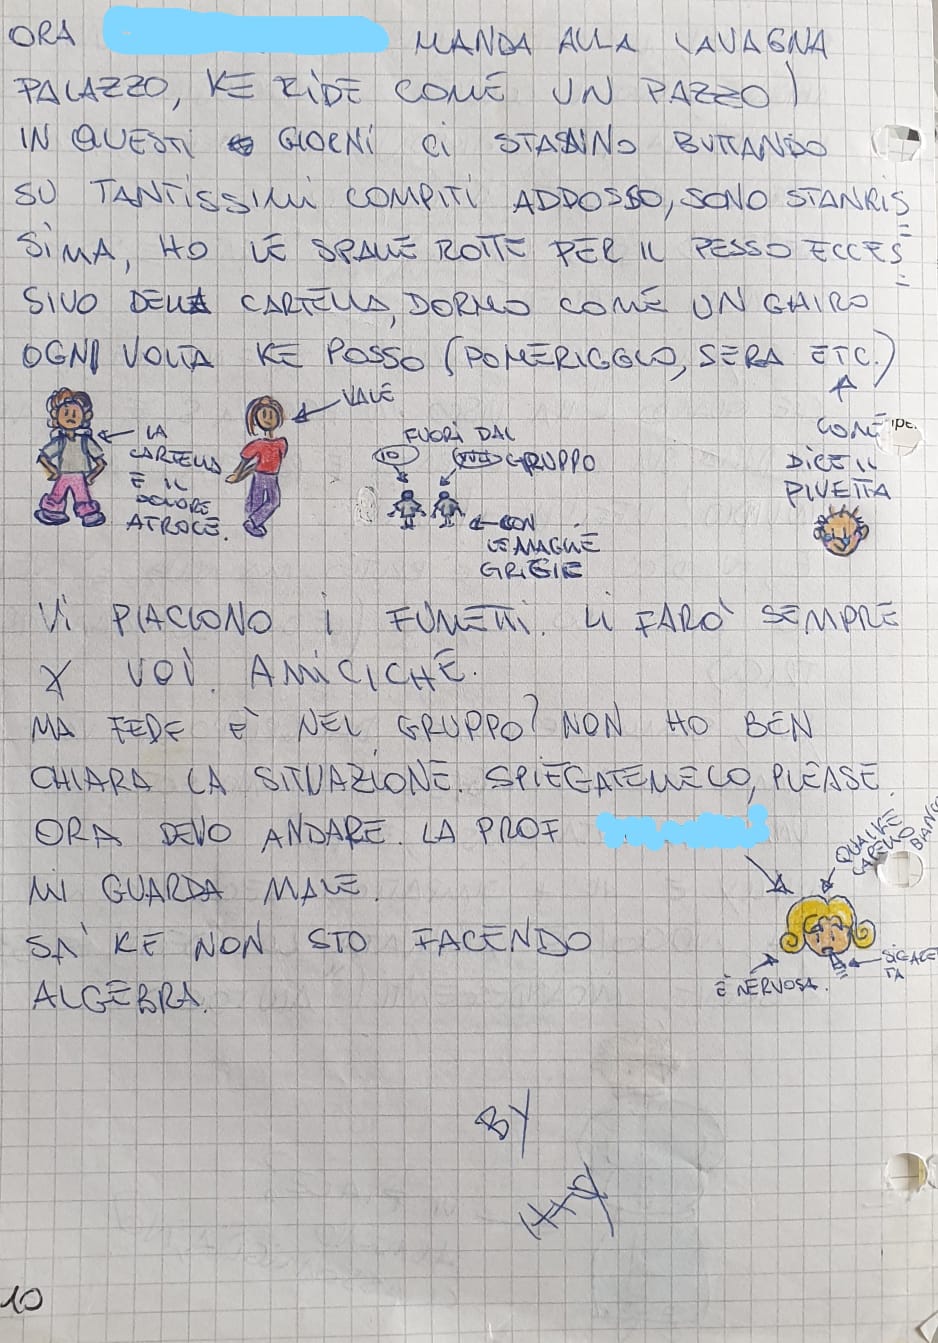 ORA MANDA ALLA LAVAGNA
PALAZZO, KE RIDE COME UN PAZZO)
IN QUESTI GIORNI CI STANNO BUTTANDO
SU TANTISSIMI COMPITI ADDOSSO, SONO STANKIS
SIMA, HO LE SPALLE ROTTE PER IL PESSO ECCES
SIVO DELLA CARTELLA, DORMO COME UN GHIRO
OGNI VOLTA KE POSSO (POMERIGGLO, SERA ETC.)
VALE
LA
CARTELLA
E IL
DOLORE
ATROCE.
FUORI DAL
IO
GRUPPO
CON
LE MAGLIE
GRIGIE
COME
DICE IL
PIVETTA
VI PIACIONO I FUMETTI. LI FARÒ SEMPRE
X VOI. AMICICHE.
MA FEDE È NEL GRUPPO? NON HO BEN
CHIARA LA SITUAZIONE. SPIEGATEMELO, PLEASE.
ORA DEVO ANDARE. LA PROF
MI GUARDA MALE.
SA' KE NON STO FACENDO
ALGEBRA.
QUALKE
CAPELLO
BIANCO
SIGARET
TA
È NERVOSA.
BY
10